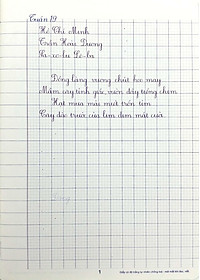 Tuần 19
Hồ Chí Minh
Trần Hoài Dương
Pu-skơ-lu Lơ-bn
Đồng làng vương chút heo may
Mầm cây tỉnh giấc, vườn đầy tiếng chim
Hạt mưa mải miết trốn tìm
Cây đào trước cửa lim dim mắt cười.
1